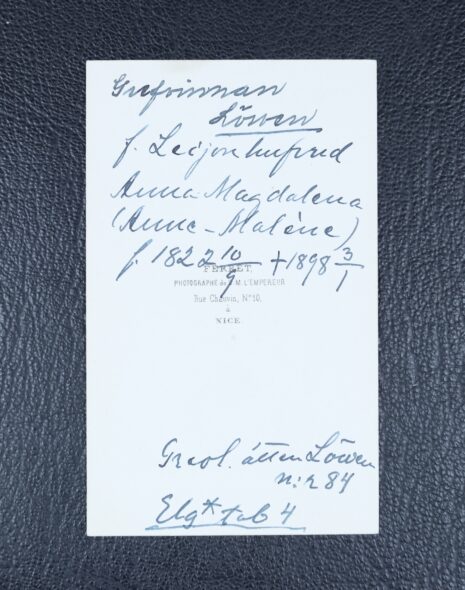 Grefvinnan
Löwen
f. Leijonhufvud
Anna-Magdalena
(Anne-Malène)
f. 1822 10/9 †1898 3/1
FERRET,
PHOTOGRAPHE de S.M. L'EMPEREUR
Rue Chauvin, Nº 10,
à
NICE.
Grevl. ätten Löwen
n:r 84
Elg* tab 4